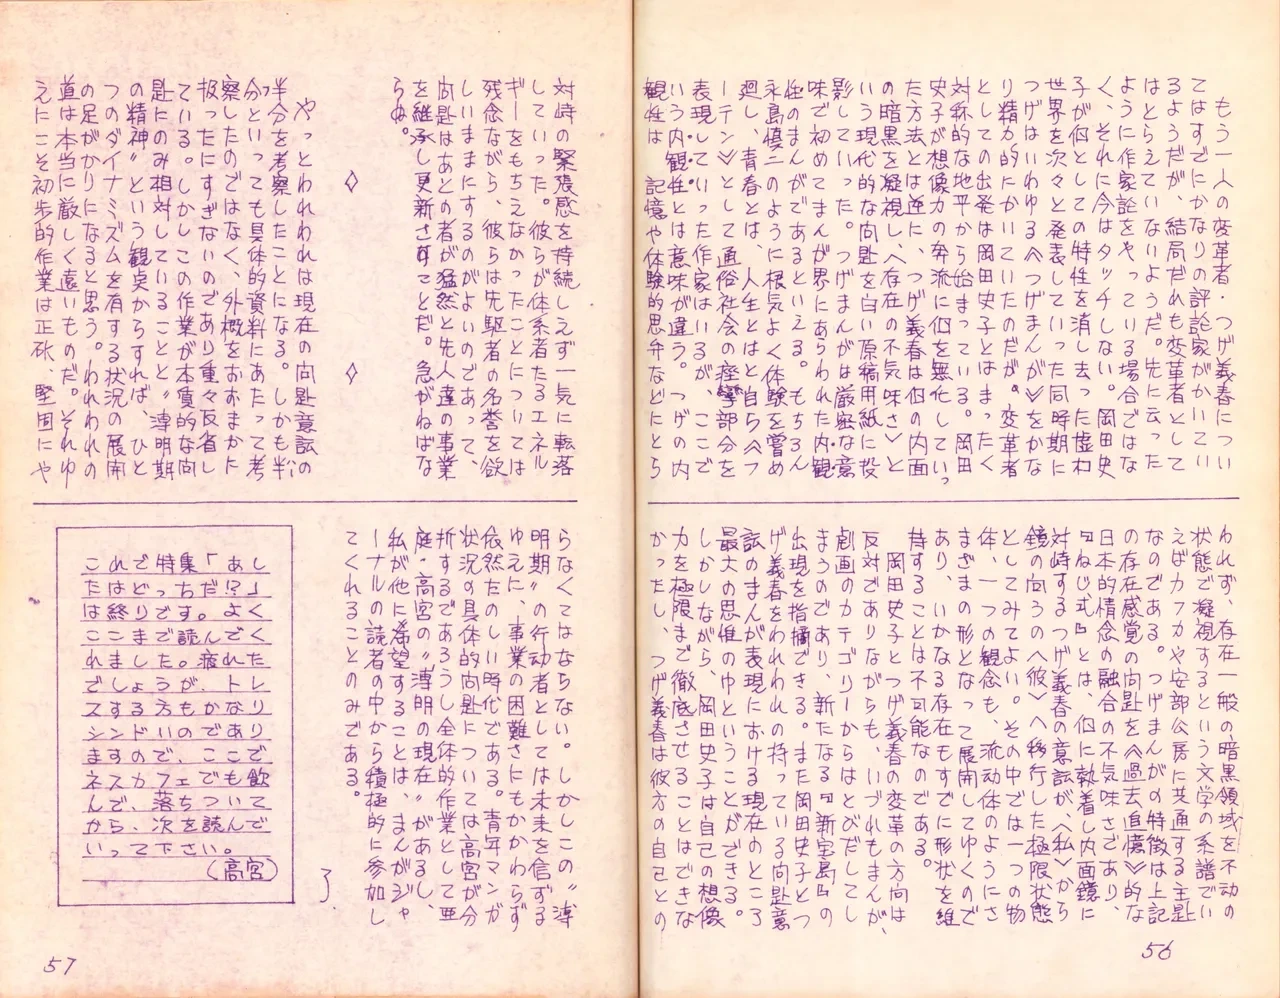 もう一人の変革者・つげ義春につい
てはすでにかなりの評論家がかいてい
るようだが、結局だれも変革者として
はとらえていないようだ。先に云った
ように作家論をやってりる場合ではな
く、それに今はタッチしない。岡田史
子が個としての特性を消し去った虚わ
世界を次々と発表していった同時期に
つげはいわゆる≪つげまんが≫をかな
り精力的にかいていたのだが。変革者
としての出発は岡田史子とはまったく
対称的な地平から始まっている。岡田
史子が想像力の奔流に個を無化していっ
た方法とは逆に、つげ義春は個の内面
の暗黒を凝視し、〈存在の不気味さ〉と
いう現代的な问題を白い原稿用紙に投
影していった。つげまんがは厳密な意
味で初めてまんが界にあらわれた内観
性のまんがであるといえる。もちろん
永島慎二のように根気よく体験を嘗め
廻し、青春とは、人生とはと自ら〈フ
ーテン〉として通俗社会の痙攣部分を
表現していった作家はいるが、ここで
いう内観性とは意味が違う。つげの内
観性は 記憶や体験的思弁などにとら
われず、存在一般の暗黒領域を不動の
状態で凝視するという文学の系譜でい
えばカフカや安部公房に共通する主題
なのである。つげまんがの特徴は上記
の存在感覚の向題を≪過去追憶≫的な
日本的情念の融合の不気味さであり、
『ねじ式』とは、個に執着し内面鏡に
対峙するつげ義春の意識が、〈私〉から
鏡の向うの〈彼〉へ移行した極限状態
としてみてよい。その中では一つの物
体、一つの観念も、流動体のようにさ
まざまの形となって展開してゆくので
あり、いかなる存在もすでに形状を維
持することは不可能なのである。
岡田史子とつげ義春の変革の方向は
反対でありながらも、いづれもまんが、
劇画のカテゴリーからはとびだしてし
まうのであり、新たなる『新宝島』の
出現を指摘できる。また岡田史子とつ
げ義春をわれわれの持っている向題意
識のまんが表現における現在のところ
最大の思惟のゆということができる。
しかしながら、岡田史子は自己の想像
力を極限まで徹底させることはできな
かったし、つげ義春は彼方の自己との
56
対峙の緊張感を持続しえず一気に転落
していった。彼らが体系者たるエネル
ギーをもちえなかったことについては
残念ながら、彼らは先駆者の名誉を欲
しいままにするのがよいのであって、
向題はあとの者が猛然と先人達の事業
を継承し更新さすことだ。急がねばな
らぬ。
◇ ◇
やっとわれわれは現在の向題意識の
半分を考察したことになる。しかも半
分といっても具体的資料にあたって考
察したのではなく、外概をおおまかに
扱ったにすぎないのであり重々反省し
ている。しかしこの作業が本質的な向
題にのみ相対していることと〝薄明期
の精神〟という観点からすれば、ひと
つのダイナミズムを有する状況の展開
の足がかりになると思う。われわれの
道は本当に厳しく遠いものだ。それゆ
えにこそ初歩的作業は正確、堅固にや
らなくてはならない。しかしこの〝薄
明期〟の行動者としては未来を信ずる
ゆえに、事業の困難さにもかかわらず
依然たのしい時代である。青年マンガ
状況の具体的向題については高宮が分
析するであろうし全体的作業として亜
庭・高宮の〝薄明の現在〟があるし、
私が他に希望することは、まんがジャ
ーナルの読者の中から積極的に参加し
てくれることのみである。
これで特集「あし
たはどっちだ!?」
は終りです。よく
ここまで読んでく
れました。疲れた
でしょうが、トレ
スする方もかなり
シンドいのであり
ますので、ここで
ネスカフェでも飲
んで、落ちついて
から、次を読んで
いって下さい。
(高宮)
57